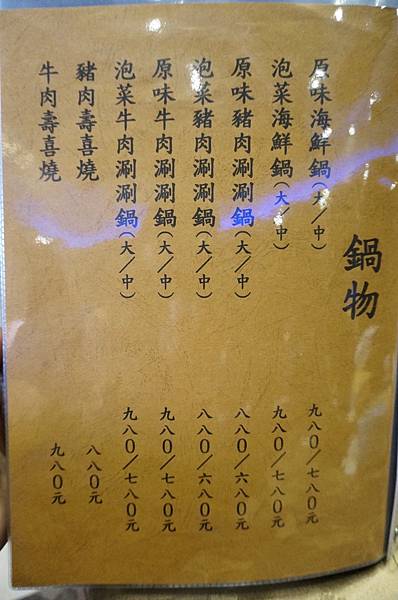 鍋物
原味海鮮鍋(大/中) 九八0/七八0元
泡菜海鮮鍋(大/中) 九八0/七八0元
原味豬肉涮涮鍋(大/中) 八八0/六八0元
泡菜豬肉涮涮鍋(大/中) 八八0/六八0元
原味牛肉涮涮鍋(大/中) 九八0/七八0元
泡菜牛肉涮涮鍋(大/中) 九八0/七八0元
豬肉壽喜燒 八八0元
牛肉壽喜燒 九八0元